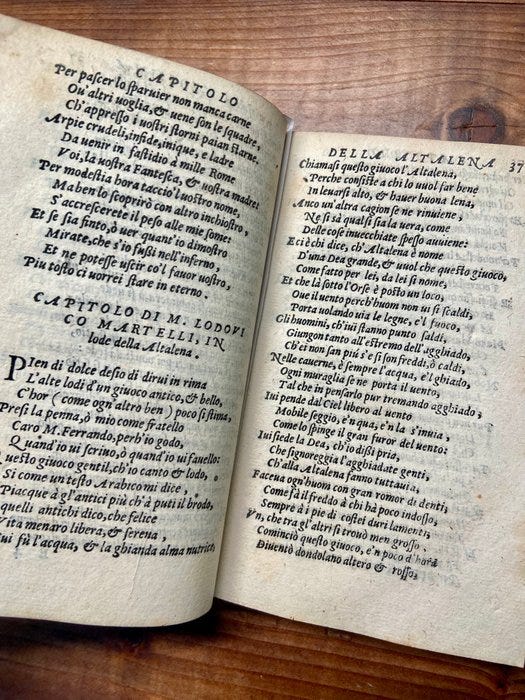 CAPITOLO
Per pascer lo sparuier non manca carne
Ou'altri uoglia, & uene son le squadre,
Ch'appresso i uostri storni paian starne.
Arpie crudeli, infide, inique, e ladre
Da uenir in fastidio à mille Rome
Voi, la uostra Fantesca, & uostra madre:
Per modestia hora taccio'l uostro nome,
Ma ben lo scoprirò con altro inchiostro,
S'accrescerete il peso alle mie some:
Et se sia finto, ò uer quant'io dimostro
Mirate, che s'io fußi nell'inferno,
Et ne potesse uscir co'l fauor uostro,
Più tosto ci uorrei stare in eterno.
CAPITOLO DI M. LODOVI
CO MARTELLI, IN
lode della Altalena.
PIen di dolce desio di dirui in rima
L'alte lodi d'un giuoco antico, & bello,
C'hor (come ogn'altro ben) poco si stima,
Presi la penna, ò mio come fratello
Caro M. Ferrando, perh'io godo,
Quand'io ui scriuo, ò quand'io ui fauello:
questo giuoco gentil, ch'io canto & lodo,
Si come un testo Arabico mi dice,
Piacque à gl'antici più ch'à puti il brodo,
quelli antichi dico, che felice
Vita menaro libera, & serena,
Cui fù l'acqua, & la ghianda alma nutrice,
DELLA ALTALENA 37
Chiamasi questo giuoco l'Altalena,
Perche consiste a chi lo uuol far bene
In leuarsi alto, & hauer buona lena,
Anco un'altra cagion se ne rinuiene,
Ne si sà qual si sia la uera, come
Delle cose inuecchiate spesso auuiene:
E ci è chi dice, ch'Altalena è nome
D'una Dea grande, & uuol che questo giuoco,
Come fatto per lei, da lei si nome,
Et che là sotto l'Orse è posto un loco,
Oue il uento perch'huom non ui si scaldi,
Porta uolando uia le legne, e'l fuoco,
Gli huomini, ch'iui stanno punto saldi,
Giungon tanto all'estremo dell'agghiado,
Ch'ei non san piú s'e si son freddi, ò caldi,
Nelle cauerne, è sempre l'acqua, e'l ghiado,
Ogni muraglia se ne porta il uento,
Tal che in pensarlo pur tremando agghiado,
Iui pende dal Ciel libero al uento
Mobile seggio, e'n qua, e'n la s'inuia,
Come lo spinge il gran furor del uento:
Iui siede la Dea, ch'io dißi pria,
Che signoreggia l'agghiadate genti,
Ch'alla Altalena fanno tuttauia,
Faceua ogn'huom con gran romor di denti,
Come fà'l freddo à chi hà poco indosso,
Sempre à i pie di costei duri lamenti;
Vn, che tra gl'altri si trouò men grosso,
Cominciò questo giuoco, e'n poco d'hora
Diuentò dondolano altero & rosso,